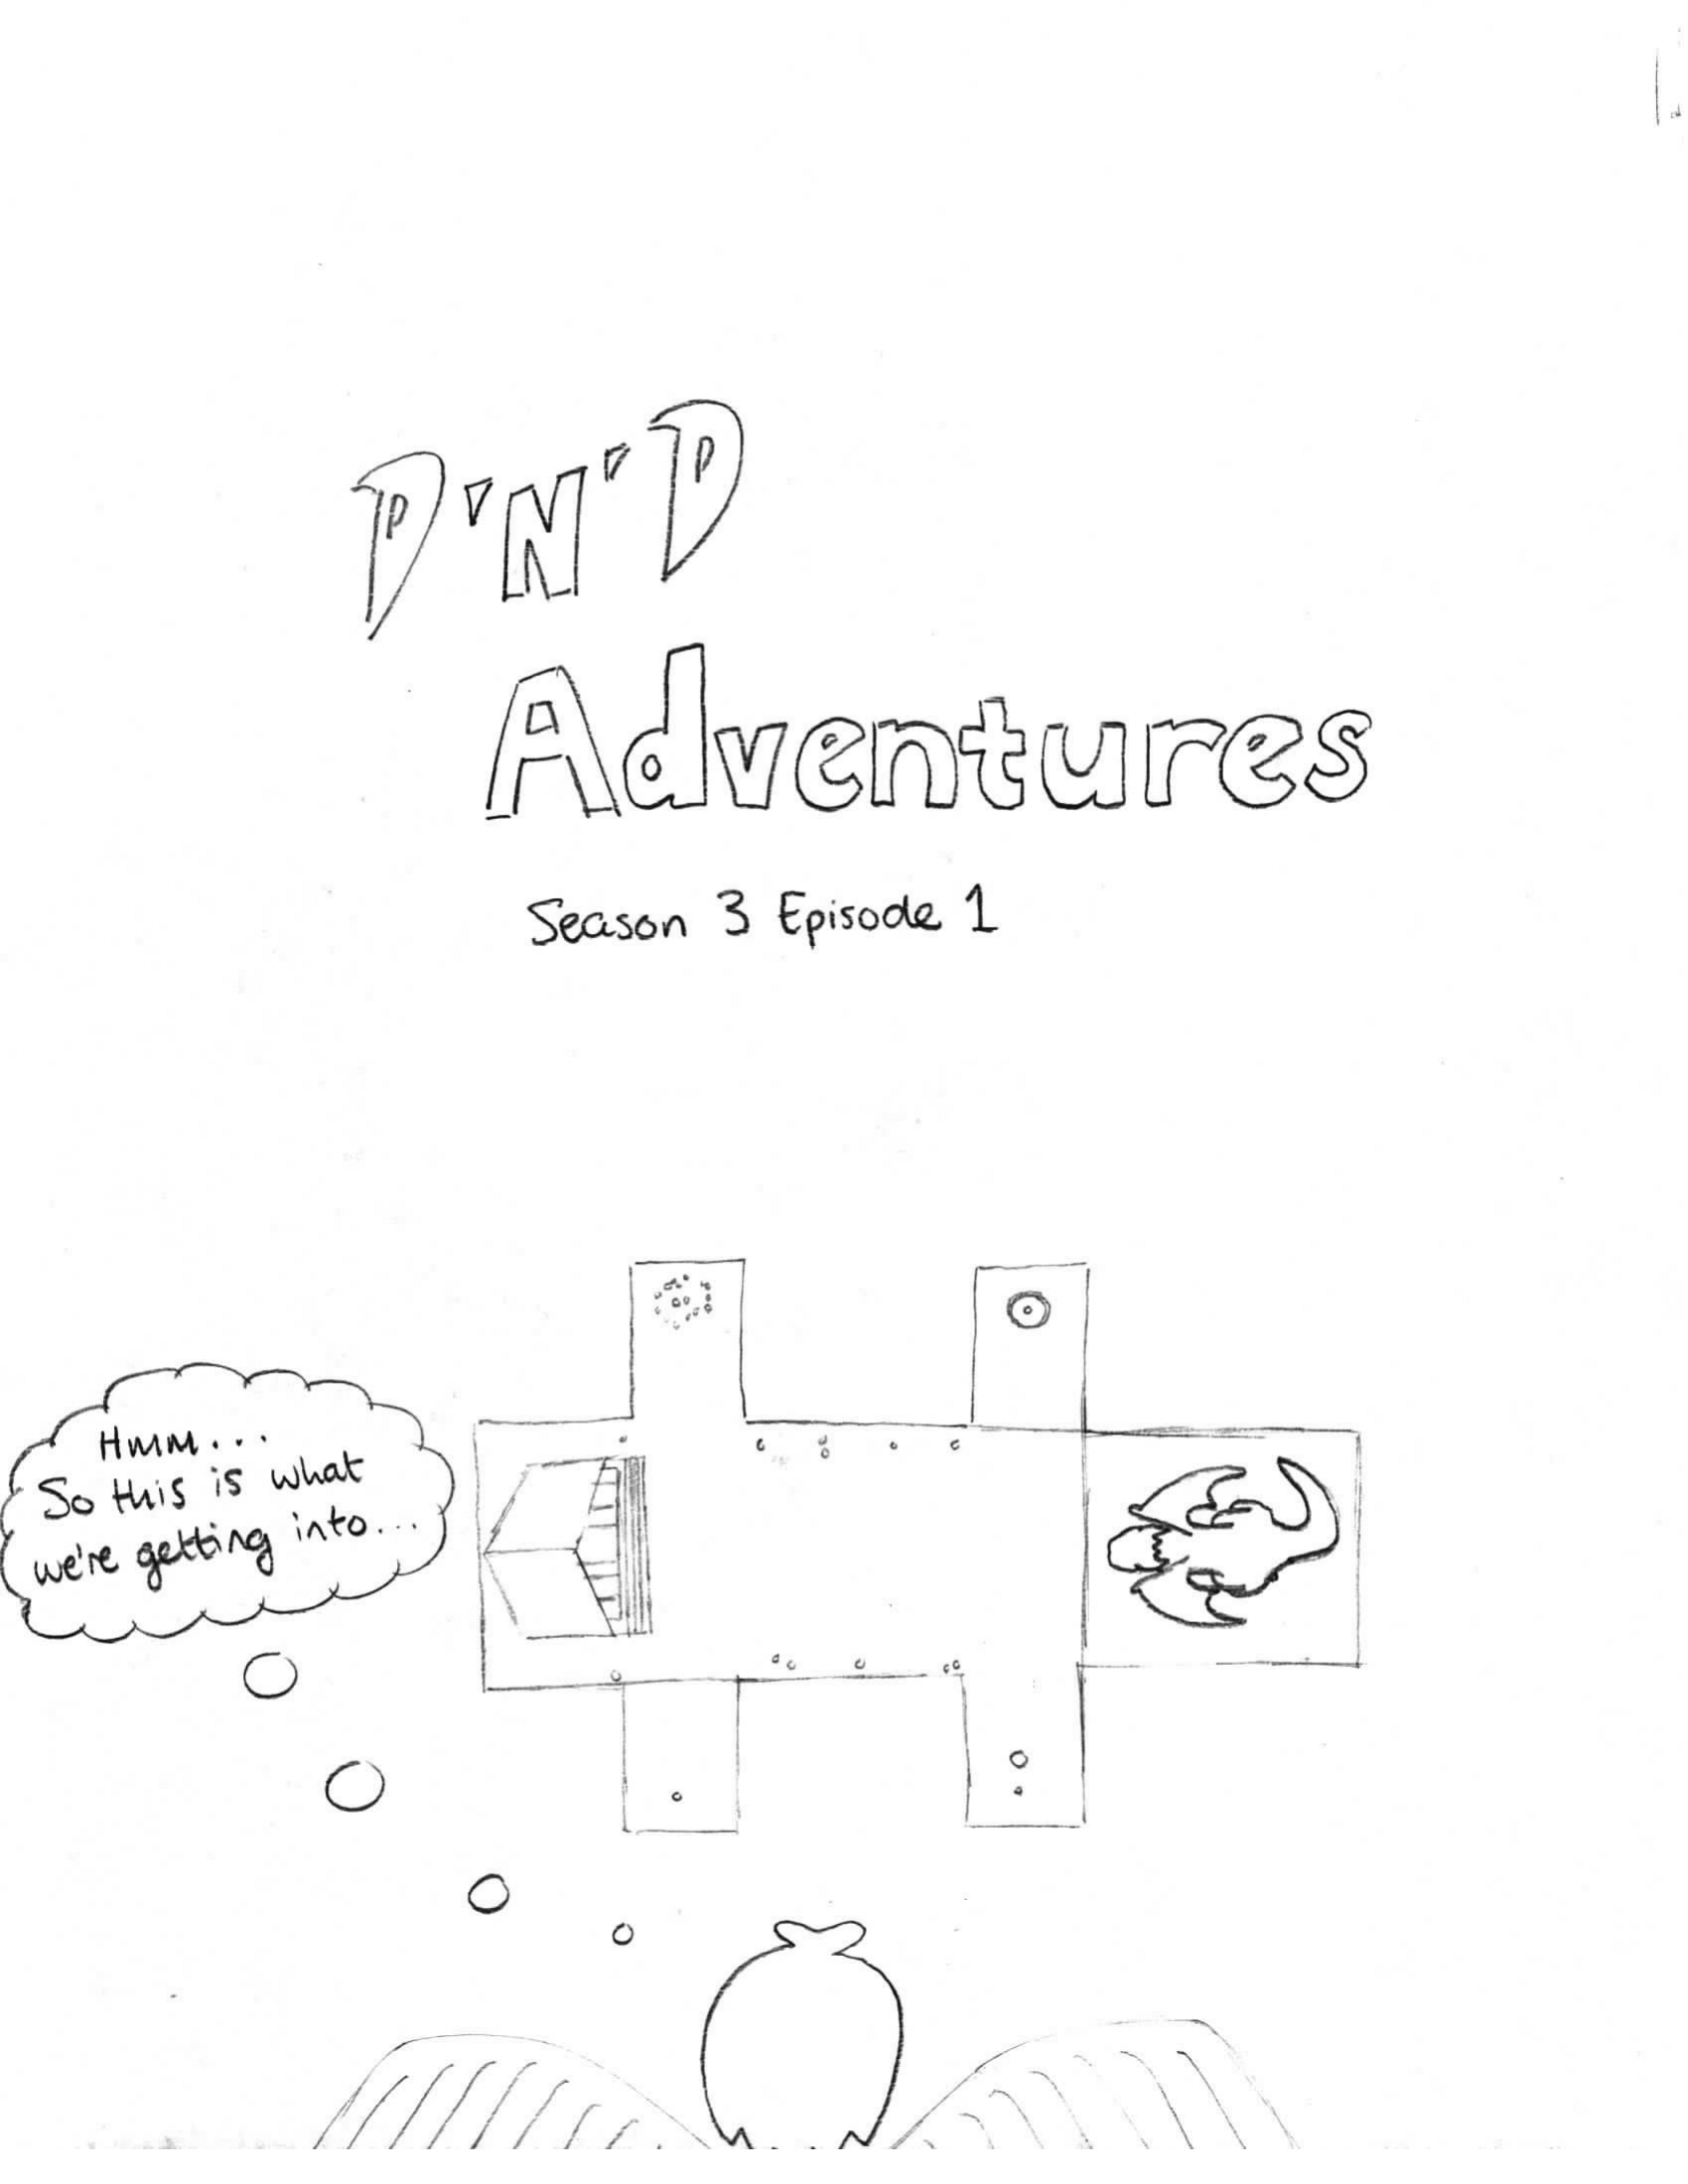 D'N'D
Adventures
Season 3 Episode 1
Hmm...
So this is what
we're getting into...